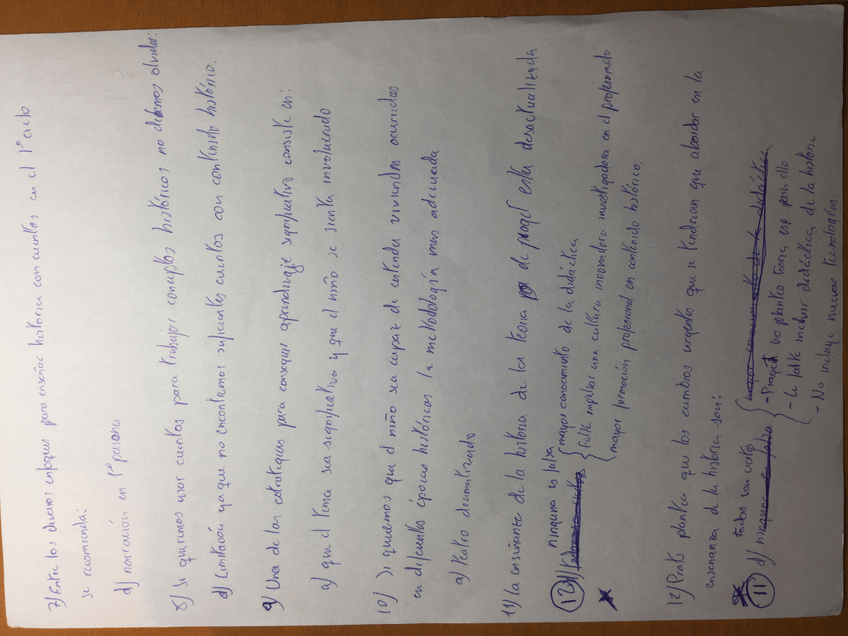 7) Entre los diversos enfoques para enseñar historia con cuentos en el 1º ciclo
se recomienda:
d) narración en 1º persona
8) Si queremos usar cuentos para trabajar conceptos históricos no debemos olvidar:
d) Limitación ya que no encontremos suficientes cuentos con contenido histórico.
9) Una de las estrategias para conseguir aprendizaje significativo consiste en:
a) que el tema sea significativo y que el niño se sienta involucrado
10) Si queremos que el niño sea capaz de entender vivencias ocurridas
en diferentes épocas históricas la metodología mas adecuada
a) teatro dramatizado
11) La enseñante de la historia de la teoria de piaget esta desactualizada
ninguna es falsa
(12) d)
mayor conocimiento de la didáctica
Falte impulsar una cultura innovadora investigadora en el profesorado
mayor formación profesional en contenido histórico.
12) Prats plantea que los cambios urgentes que se tendrian que abordar en la
enseñanza de la historia son:
todas son ciertas
(11) d) ninguna es falsa
mayor conocimiento de la didáctica
- Piaget no planteo teoria esp para ello
- Le falte incluir didáctica de la historia
- No incluye nuevas tecnologías